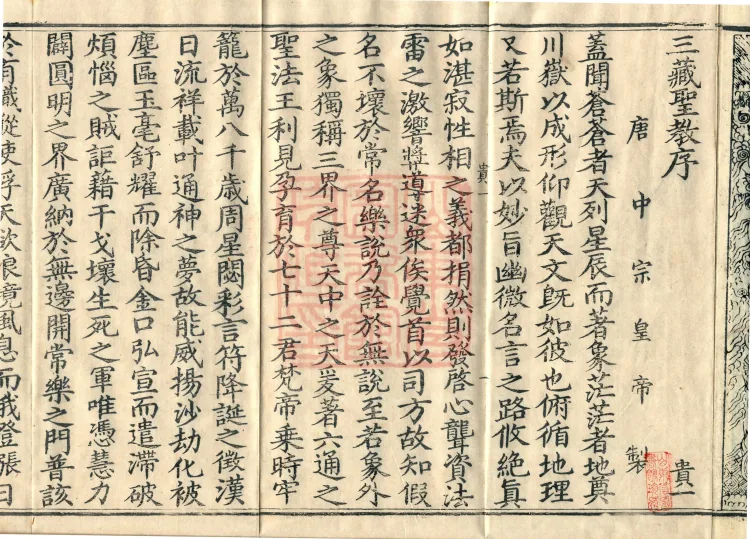 三藏聖教序
唐中宗皇帝製
貴一
蓋聞蒼蒼者天列星辰而著象茫茫者地奠
川嶽以成形仰觀天文旣如彼也俯循地理
又若斯焉夫以妙旨幽微名言之路攸絶眞
如湛寂性相之義都捐然則發啓心聾資法
貴一
雷之激響將導迷衆俟覺首以司方故知假
名不壞於常名樂說乃詮於無說至若象外
之象獨稱三界之尊天中之天爰著六通之
聖法王利見孕育於七十二君梵帝乗時牢
籠於萬八千歳周星閟彩言符降誕之徵漢
日流祥載叶通神之夢故能威揚沙劫化被
塵區玉毫舒耀而除昏金口弘宣而遣滯破
煩惱之賊詎藉干戈壞生死之軍唯憑慧力
闢圓明之界廣納於無邊開常樂之門普該
於有識從使浮天欲浪境風息而俄澄張日